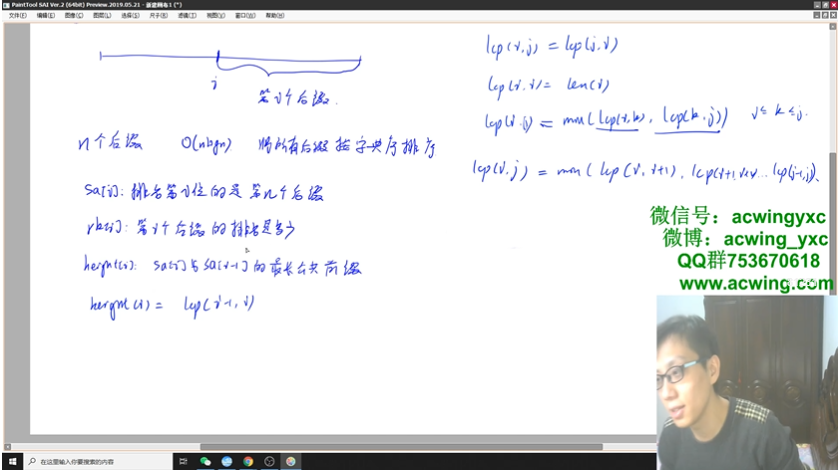 PaintTool SAI Ver.2 (64bit) Preview.2019.05.21 - 新建画布1 (*)
文件(F) 编辑(E) 图像(C) 图层(L) 选择(S) 尺子(R) 滤镜(T) 视图(V) 窗口(W) 帮助(H)
i
第i个后缀.
n个后缀 O(nlogn) 将所有后缀按字典序排序
sa[i]: 排名第i位的是第几个后缀
rk[i]: 第i个后缀的排名是多少
height[i]: sa[i]与sa[i-1]的最长公共前缀
height(i) = lcp(i-1, i)
lcp(i,j) = lcp(j,i)
lcp(i,i) = len(i)
lcp(i,j) = min(lcp(i,k), lcp(k,j)) i≤k≤j.
lcp(i,j) = min(lcp(i,i+1), lcp(i+1,i+2)... lcp(j-1,j))
微信号：acwingyxc
微博：acwing_yxc
QQ群753670618
www.acwing.com
在这里输入你要搜索的内容